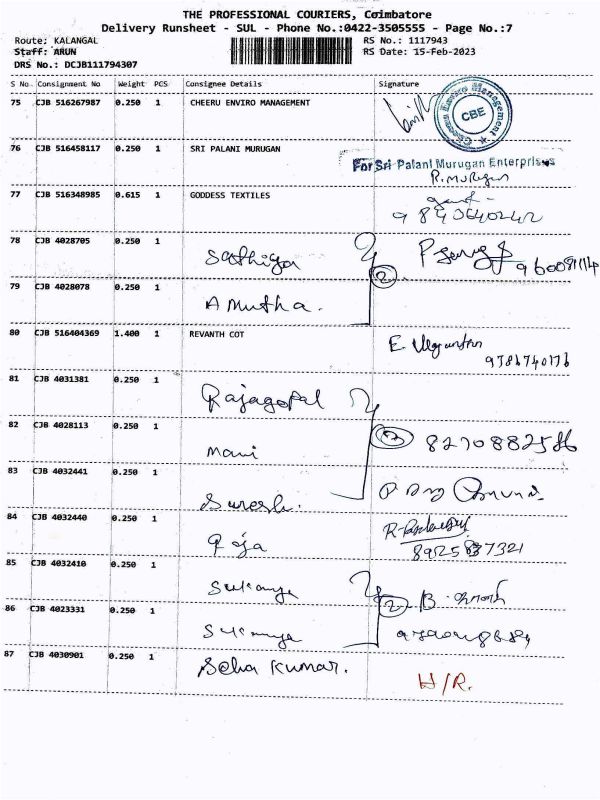 THE PROFESSIONAL COURIERS, Coimbatore
Delivery Runsheet - SUL - Phone No.:0422-3505555 - Page No.:7
Route: KALANGAL RS No.: 1117943
Staff: ARUN RS Date: 15-Feb-2023
DRS No.: DCJB111794307
S No Consignment No Weight PCS Consignee Details Signature
75 CJB 516267987 0.250 1 CHEERU ENVIRO MANAGEMENT
Cheeru Enviro Management CBE
76 CJB 516458117 0.250 1 SRI PALANI MURUGAN For Sri Palani Murugan Enterprises
R.Murugan
77 CJB 516348985 0.615 1 GODDESS TEXTILES
78 CJB 4028705 0.250 1 Sathiya 2
79 CJB 4028078 0.250 1 Amutha.
80 CJB 516404369 1.400 1 REVANTH COT
81 CJB 4031381 0.250 1 Rajagopal
82 CJB 4028113 0.250 1 Mani
83 CJB 4032441 0.250 1 Suresh.
84 CJB 4032440 0.250 1 Roja
85 CJB 4032410 0.250 1 Sukanya 2 B.
86 CJB 4023331 0.250 1 Sukanya
87 CJB 4030901 0.250 1 Kumar. H/R.